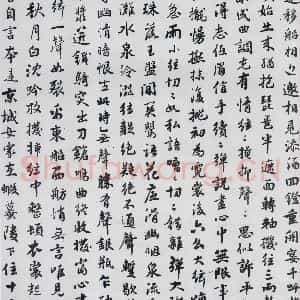 始出來猶抱琵琶半遮面轉軸撥絃三兩
成曲調先有情絃絃掩抑聲聲思似訴平
得志低眉信手續續彈說盡心中無限事
攏慢撚抹復挑初為霓裳後六幺大絃嘈
急雨小絃切切如私語嘈嘈切切錯雜彈大珠
落玉盤間關鶯語花底滑幽咽泉流
灘水泉冷澀絃凝絕凝絕不通聲
暗恨生此時無聲勝有聲銀瓶乍破水
漿迸鐵騎突出刀槍鳴曲終收撥當心
絃一聲如裂帛東船西舫悄無言唯見
秋月白沈吟放撥插絃中整頓衣裳起
言自言本是京城女家在蝦蟆陵下住十
Shufawang.cn